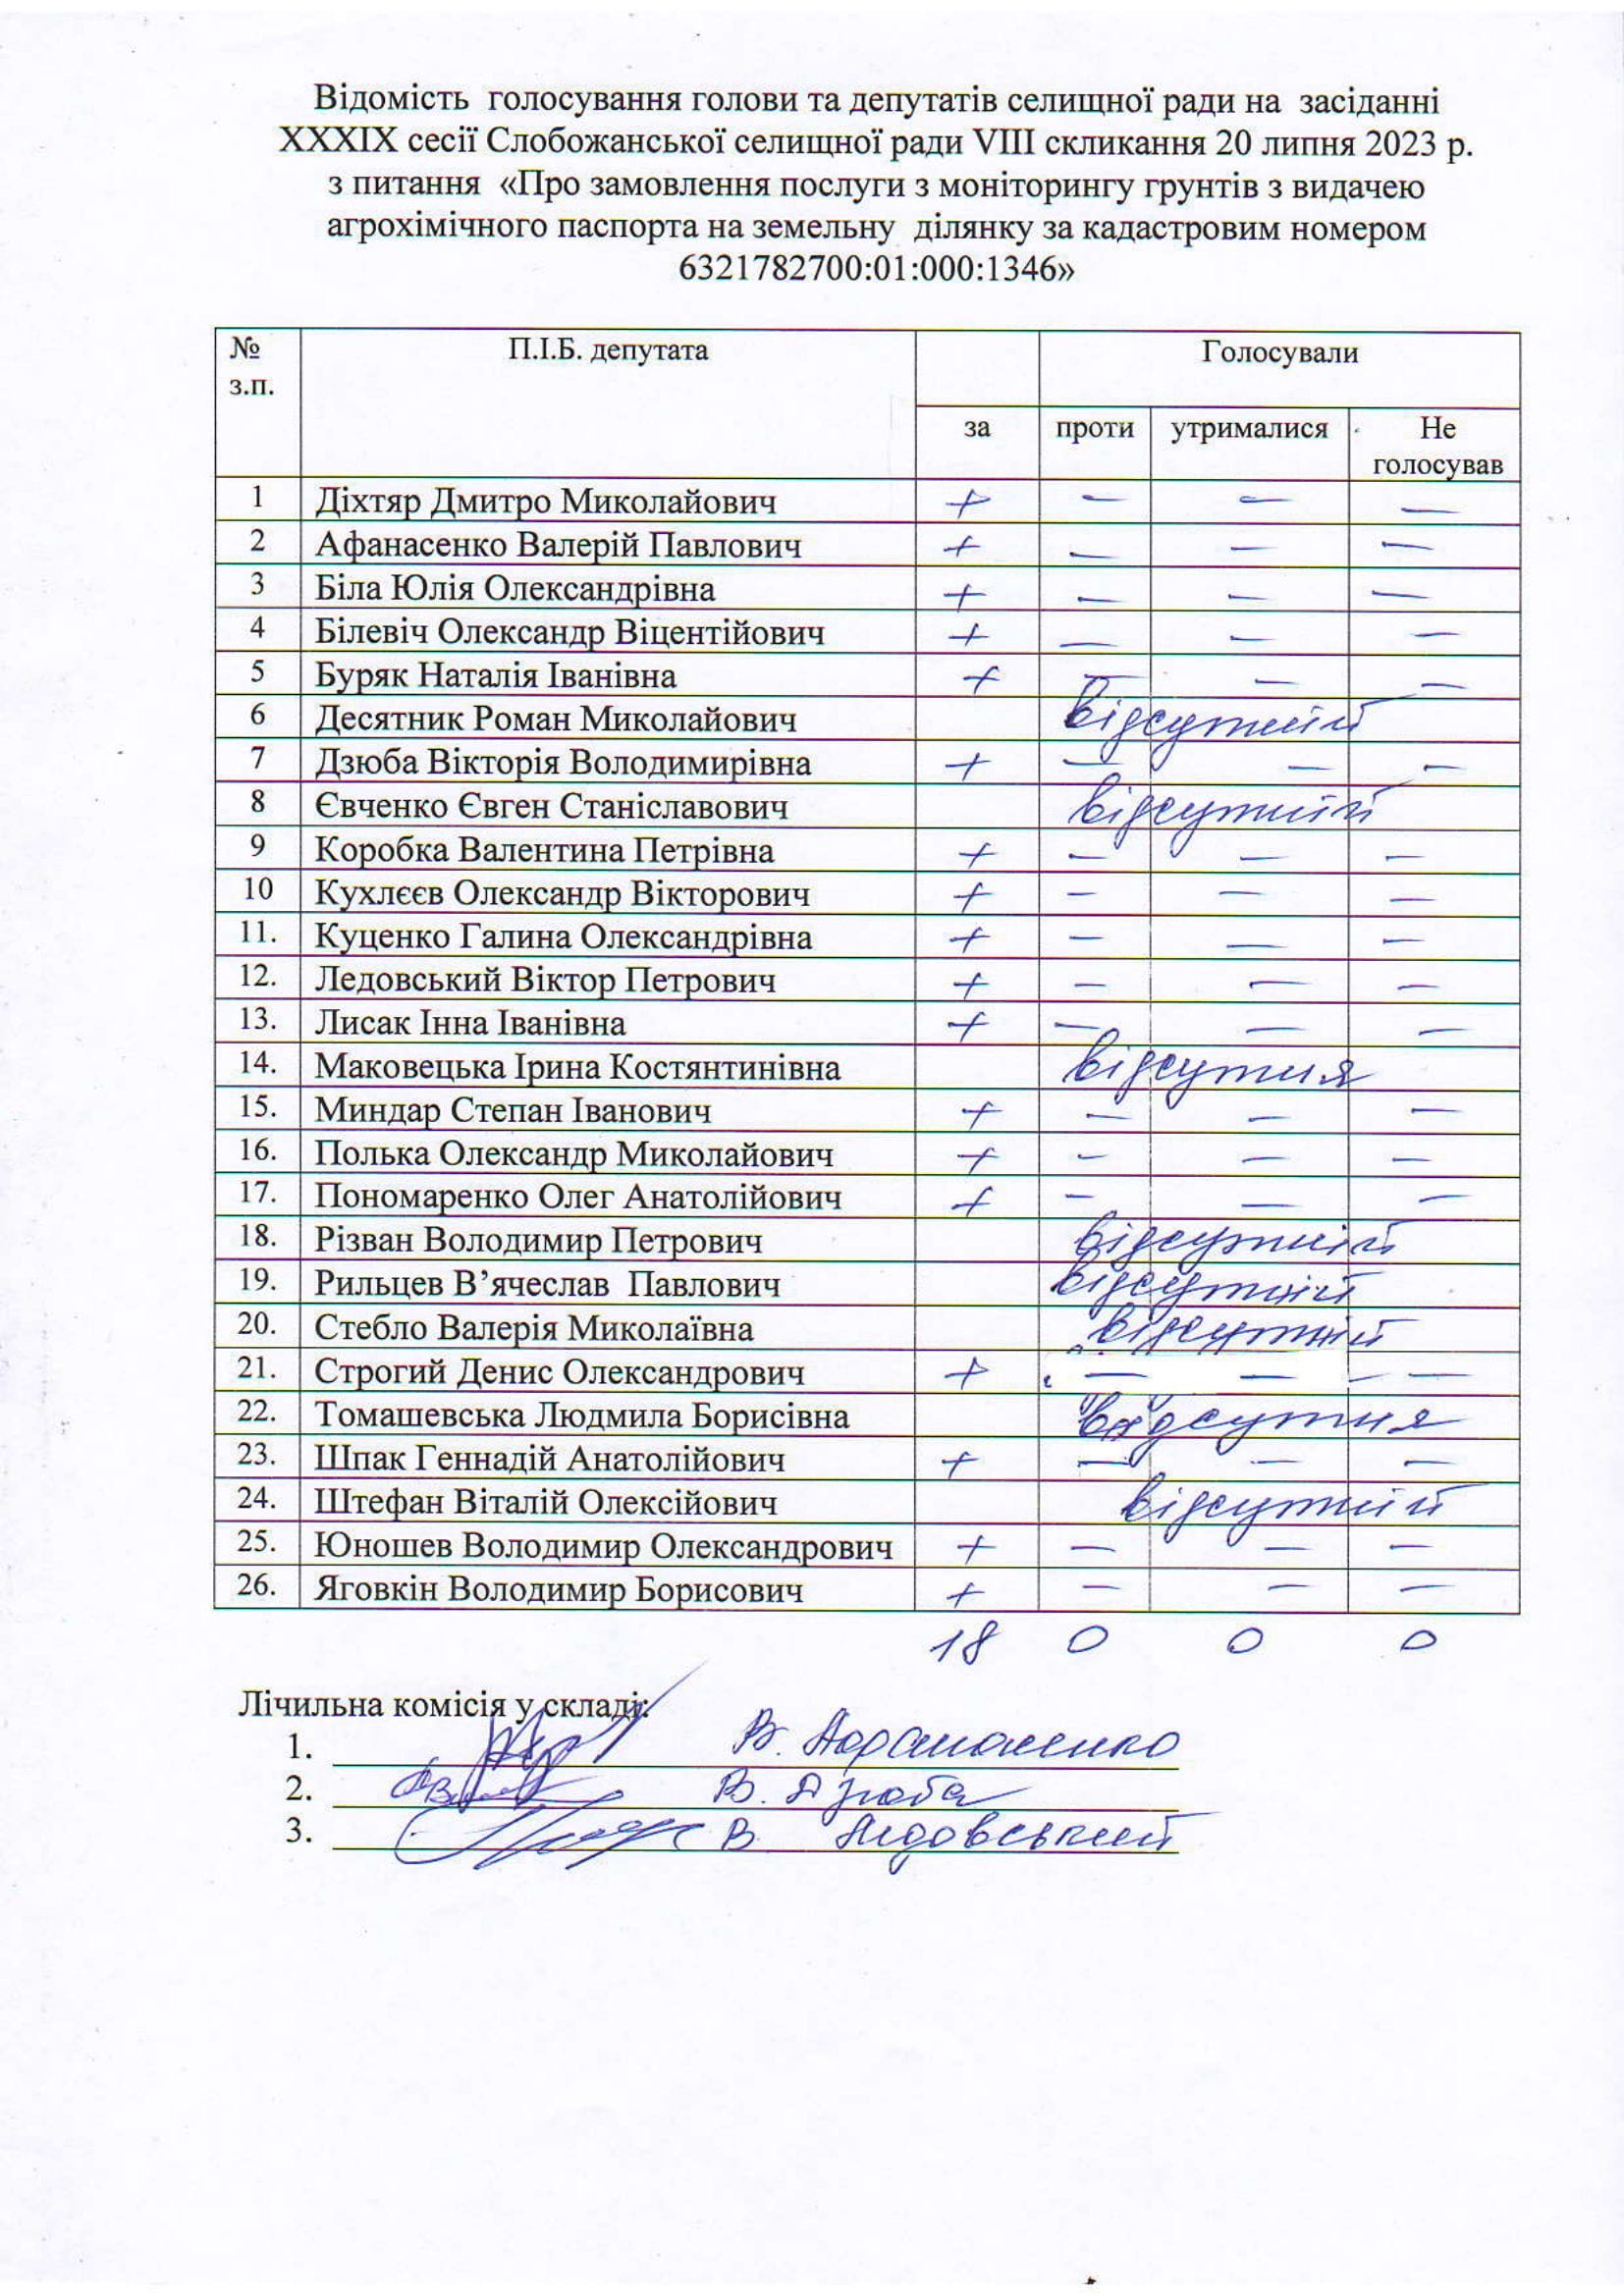 Відомість голосування голови та депутатів селищної ради на засіданні
XXXIX сесії Слобожанської селищної ради VIII скликання 20 липня 2023 р.
з питання «Про замовлення послуги з моніторингу грунтів з видачею
агрохімічного паспорта на земельну ділянку за кадастровим номером
6321782700:01:000:1346»
№ з.п. П.І.Б. депутата Голосували
за проти утрималися Не голосував
1 Діхтяр Дмитро Миколайович + — — —
2 Афанасенко Валерій Павлович + — — —
3 Біла Юлія Олександрівна + — — —
4 Білевіч Олександр Віцентійович + — — —
5 Буряк Наталія Іванівна + — — —
6 Десятник Роман Миколайович відсутній
7 Дзюба Вікторія Володимирівна + — — —
8 Євченко Євген Станіславович відсутній
9 Коробка Валентина Петрівна + — — —
10 Кухлєєв Олександр Вікторович + — — —
11. Куценко Галина Олександрівна + — — —
12. Ледовський Віктор Петрович + — — —
13. Лисак Інна Іванівна + — — —
14. Маковецька Ірина Костянтинівна відсутня
15. Миндар Степан Іванович + — — —
16. Полька Олександр Миколайович + — — —
17. Пономаренко Олег Анатолійович + — — —
18. Різван Володимир Петрович відсутній
19. Рильцев В’ячеслав Павлович відсутній
20. Стебло Валерія Миколаївна відсутній
21. Строгий Денис Олександрович + — — —
22. Томашевська Людмила Борисівна відсутня
23. Шпак Геннадій Анатолійович + — — —
24. Штефан Віталій Олексійович відсутній
25. Юношев Володимир Олександрович + — — —
26. Яговкін Володимир Борисович + — — —
18 0 0 0
Лічильна комісія у складі:
1. В. Афанасенко
2. В. Дзюба
3. В. Ледовський